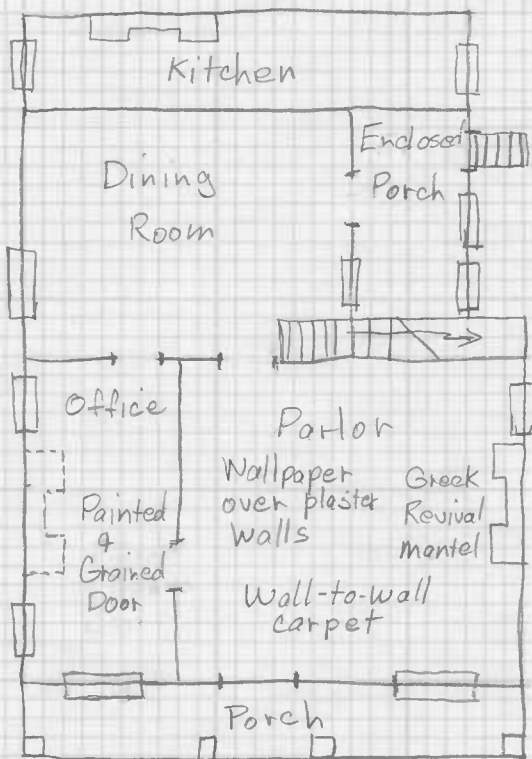 Kitchen
Enclosed
Porch
Dining
Room
Office
Parlor
Wallpaper
over plaster
walls
Greek
Revival
mantel
Painted
&
Grained
Door
Wall-to-wall
carpet
Porch